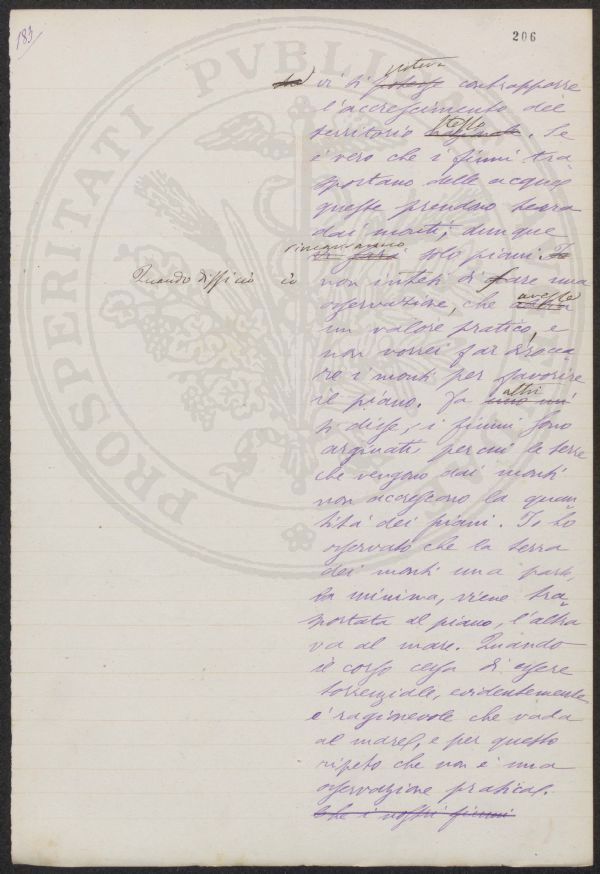 183
206
PROSPERITATI PUBLICAE
poteva
ha vi si potesse contrapporre
l'accrescimento del
stesso
territorio nazionale. Se
è vero che i fiumi tra
sportano delle acque,
queste prendono terra
dai monti, dunque
rimarranno
si farà solo piani. Io
Quando dissi ciò io
non intesi di fare una
avesse
osservazione, che abbia
un valore pratico, e
non vorrei far dirocca
re i monti per favorire
altri
il piano. Ta uno mi
si disse, i fiumi sono
arginati perciò le terre
che vengono dai monti
non accrescono la quan
tità dei piani. Io ho
osservato che la terra
dei monti una parte,
la minima, viene tra
sportata al piano, l'altra
va al mare. Quando
il corso cessa di essere
torrenziale, evidentemente
è ragionevole che vada
al mare, e per questo
ripeto che non è una
osservazione pratica.
Che i nostri fiumi